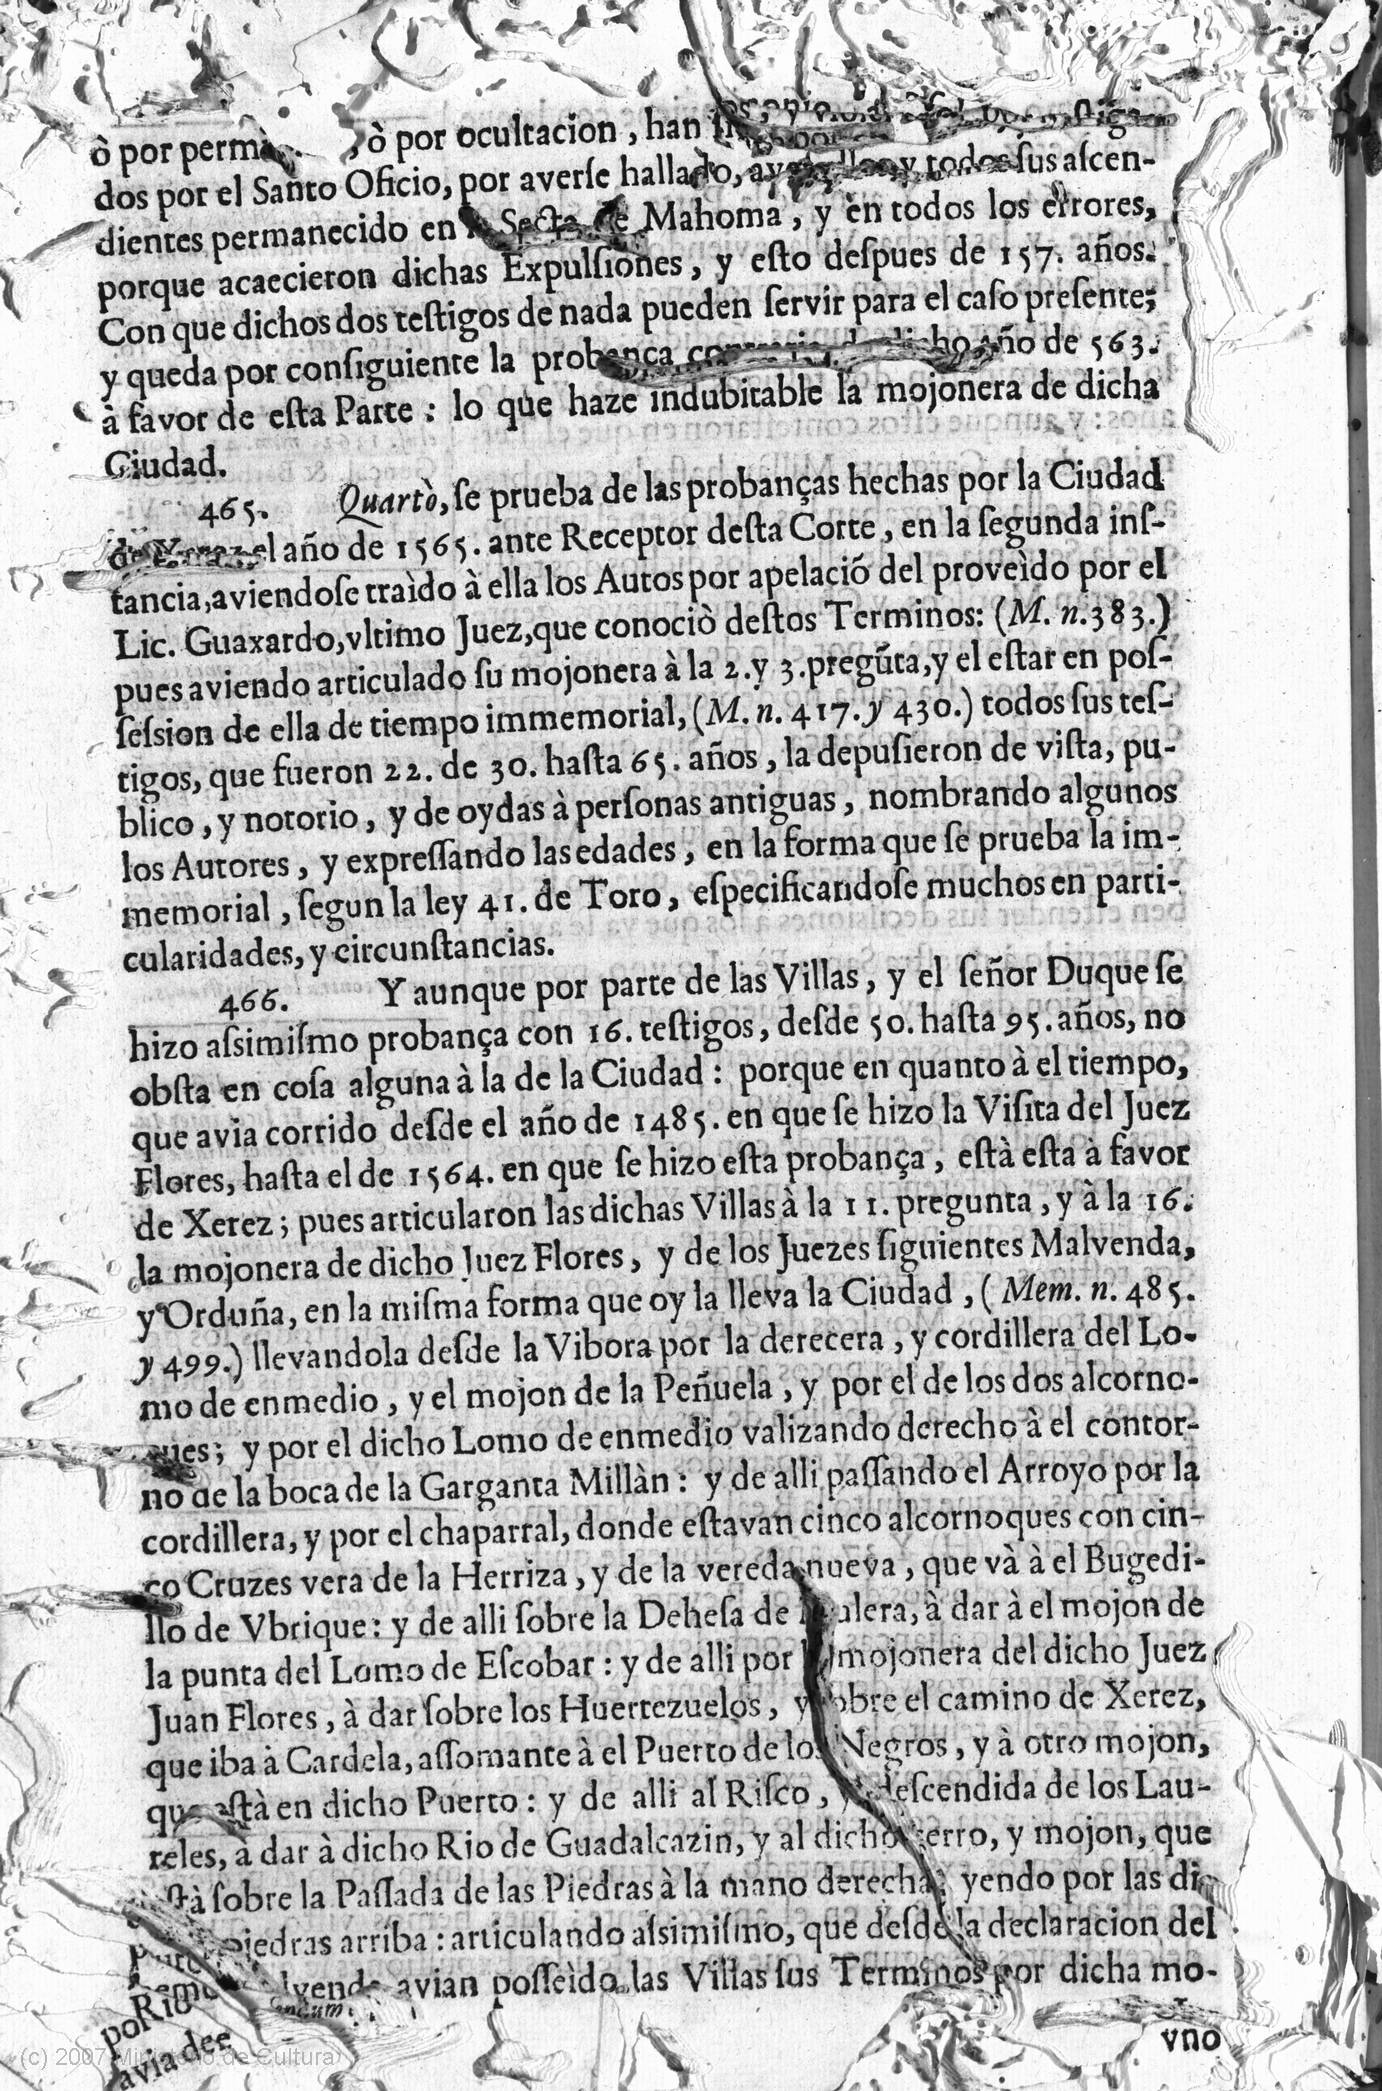 ò por ocultacion, han
dos por el Santo Oficio, por averſe hallado, y todos ſus aſcen-
dientes permanecido en Secta de Mahoma, y en todos los errores,
porque acaecieron dichas Expulſiones, y eſto deſpues de 157. años.
Con que dichos dos teſtigos de nada pueden ſervir para el caſo preſente;
y queda por conſiguiente la probança contraria de dicho año de 563.
à favor de eſta Parte: lo que haze indubitable la mojonera de dicha
Ciudad.
465. Quartò, ſe prueba de las probanças hechas por la Ciudad
de Xerez el año de 1565. ante Receptor deſta Corte, en la ſegunda inſ-
tancia, aviendoſe traìdo à ella los Autos por apelaciõ del proveìdo por el
Lic. Guaxardo, vltimo Juez, que conociò deſtos Terminos: (M. n. 383.)
pues aviendo articulado ſu mojonera à la 2. y 3. pregũta, y el eſtar en poſ-
ſeſsion de ella de tiempo immemorial, (M. n. 417. y 430.) todos ſus teſ-
tigos, que fueron 22. de 30. haſta 65. años, la depuſieron de viſta, pu-
blico, y notorio, y de oydas à perſonas antiguas, nombrando algunos
los Autores, y expreſſando las edades, en la forma que ſe prueba la im-
memorial, ſegun la ley 41. de Toro, eſpecificandoſe muchos en parti-
cularidades, y circunſtancias.
466. Y aunque por parte de las Villas, y el ſeñor Duque ſe
hizo aſsimiſmo probança con 16. teſtigos, deſde 50. haſta 95. años, no
obſta en coſa alguna à la de la Ciudad: porque en quanto à el tiempo,
que avia corrido deſde el año de 1485. en que ſe hizo la Viſita del Juez
Flores, haſta el de 1564. en que ſe hizo eſta probança, eſtà eſta à favor
de Xerez; pues articularon las dichas Villas à la 11. pregunta, y à la 16.
la mojonera de dicho Juez Flores, y de los Juezes ſiguientes Malvenda,
y Orduña, en la miſma forma que oy la lleva la Ciudad, (Mem. n. 485.
y 499.) llevandola deſde la Vibora por la derecera, y cordillera del Lo-
mo de enmedio, y el mojon de la Peñuela, y por el de los dos alcorno-
ques; y por el dicho Lomo de enmedio valizando derecho à el contor-
no de la boca de la Garganta Millàn: y de alli paſſando el Arroyo por la
cordillera, y por el chaparral, donde eſtavan cinco alcornoques con cin-
co Cruzes vera de la Herriza, y de la vereda nueva, que và à el Bugedi-
llo de Vbrique: y de alli ſobre la Deheſa de à dar à el mojon de
la punta del Lomo de Eſcobar: y de alli por mojonera del dicho Juez
Juan Flores, à dar ſobre los Huertezuelos, y ſobre el camino de Xerez,
que iba à Cardela, aſſomante à el Puerto de los Negros, y à otro mojon,
que eſtà en dicho Puerto: y de alli al Riſco, deſcendida de los Lau-
reles, à dar à dicho Rio de Guadalcazin, y al dicho Cerro, y mojon, que
eſtà ſobre la Paſſada de las Piedras à la mano derecha; yendo por las di-
piedras arriba: articulando aſsimiſmo, que deſde la declaracion del
avian poſſeìdo las Villas ſus Terminos por dicha mo-
vno
Rio
avia
(c) 2007 Ministerio de Cultura